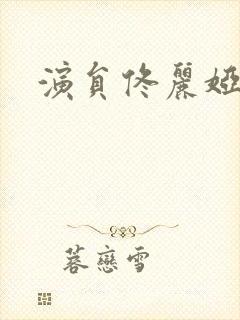 演員佟麗婭
蓉戀雪